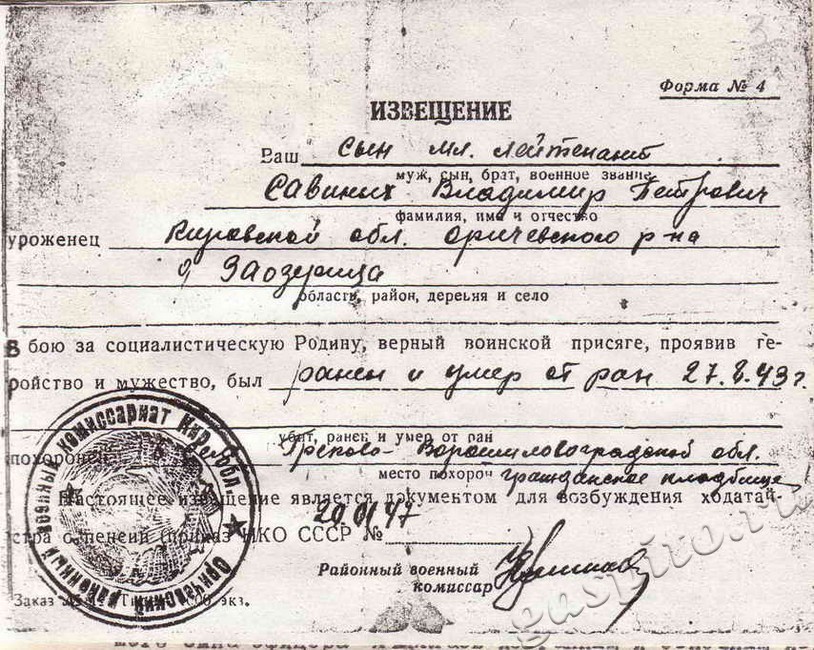 Форма № 4
ИЗВЕЩЕНИЕ
Ваш сын мл. лейтенант
муж, сын, брат, военное звание
Савиных Владимир Петрович
фамилия, имя и отчество
уроженец Кировской обл. Оричевского р-на
д Заозерица
область, район, деревня и село
В бою за социалистическую Родину, верный воинской присяге, проявив ге-
ройство и мужество, был ранен и умер от ран 27.8.43 г.
убит, ранен и умер от ран
похоронен Греково- Ворошиловоградской обл.
место похорон гражданское кладбище
Настоящее извещение является документом для возбуждения ходатай-
ства о пенсии (приказ НКО СССР №
47
Районный военный
комиссар
Заказ экз.
Оричевский районный военный комиссариат Кир. обл.
gaspiro.ru